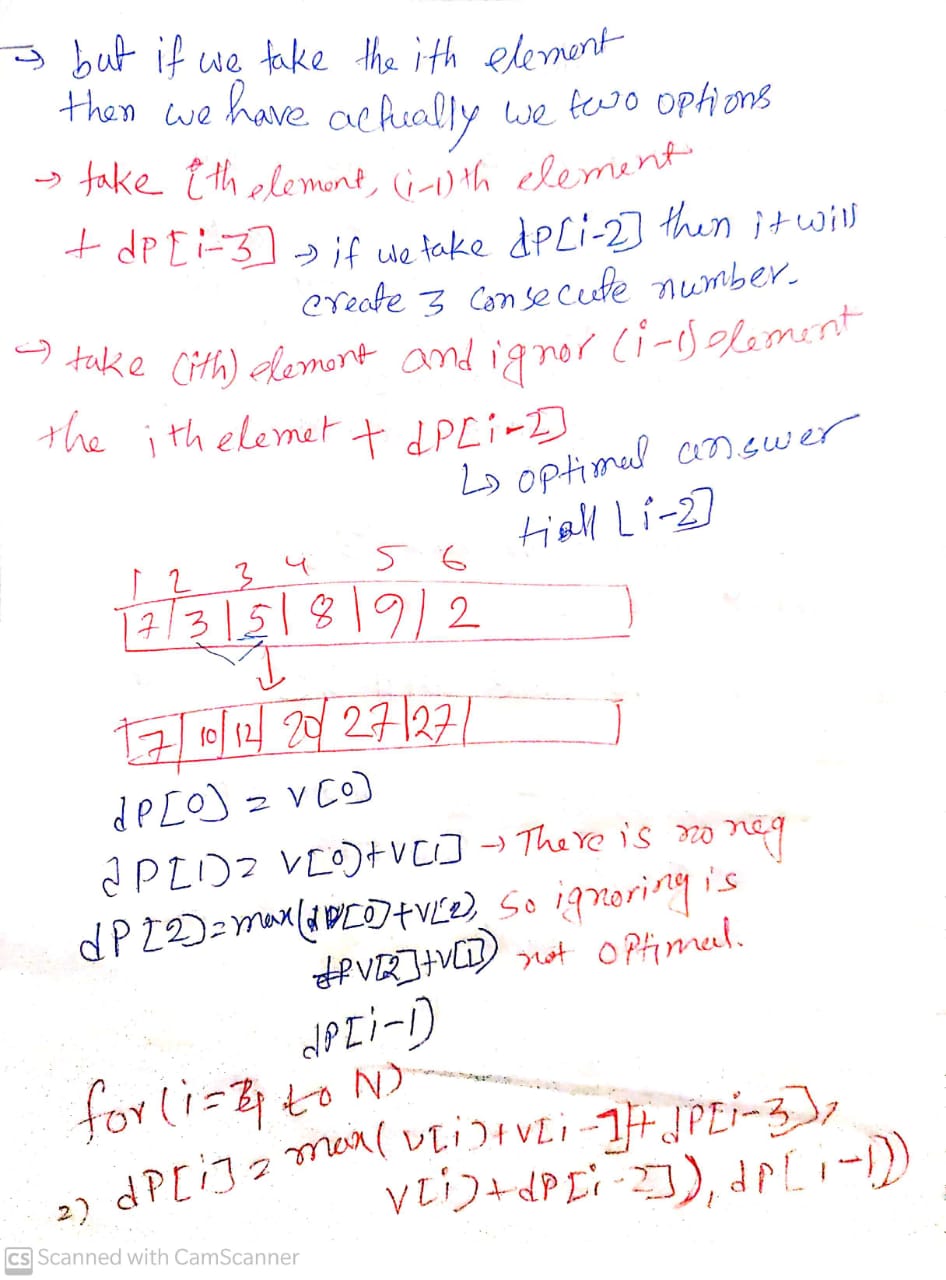 → but if we take the ith element
then we have actually we two options
→ take ith element, (i-1)th element
+ dp[i-3] → if we take dp[i-2] then it will
create 3 consecute number.
→ take (ith) element and ignor (i-1) element
the ith elemet + dp[i-2]
↳ optimal answer
till [i-2]
1 2 3 4 5 6
7 | 3 | 5 | 8 | 9 | 2
7 | 10 | 12 | 20 | 27 | 27 |
dp[0] = v[0]
dp[1] = v[0]+v[1] → There is no neg
dp[2] = max(dp[0]+v[2], so ignoring is
v[2]+v[1]) not optimal.
dp[i-1)
for(i=3 to N)
2) dp[i] = max( v[i]+v[i-1]+dp[i-3],
v[i]+dp[i-2]), dp[i-1])
CS Scanned with CamScanner